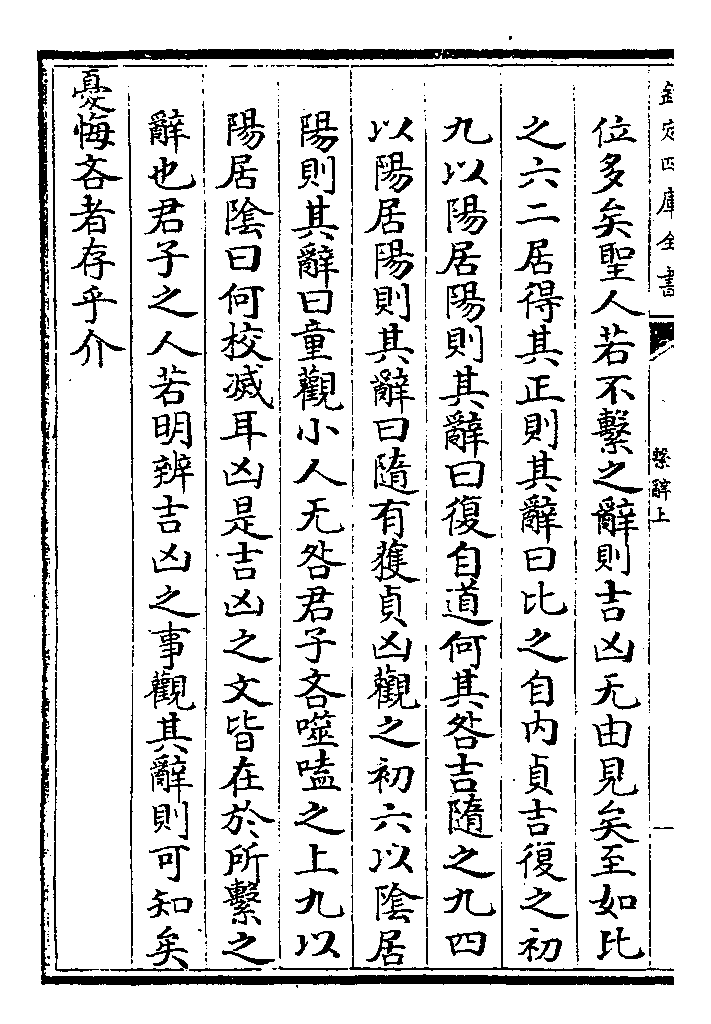 欽定四庫全書
繫辭上
一
位多矣聖人若不繫之辭則吉凶无由見矣至如比
之六二居得其正則其辭曰比之自内貞吉復之初
九以陽居陽則其辭曰復自道何其咎吉隨之九四
以陽居陽則其辭曰隨有獲貞凶觀之初六以陰居
陽則其辭曰童觀小人无咎君子吝噬嗑之上九以
陽居陰曰何校滅耳凶是吉凶之文皆在於所繫之
辭也君子之人若明辨吉凶之事觀其辭則可知矣
憂悔吝者存乎介